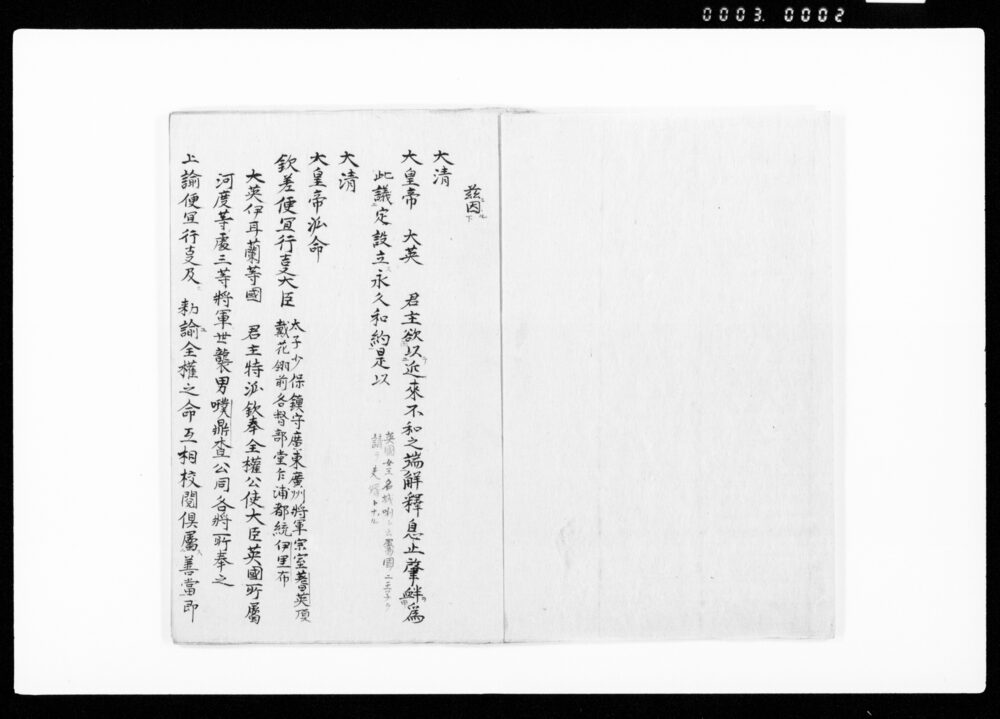 0003. 0002
茲因
大清
大皇帝 大英 君主欲以近來不和之端解釋息止肇衅爲
此議定設立永久和約是以
大清
大皇帝派命
欽差便宜行事大臣 太子少保鎮守廣東廣州將軍宗室耆英頂
戴花翎前各督部堂乍浦都統伊里布
大英伊耳蘭等國 君主特派欽奉全權公使大臣英國所屬
河度等處三等將軍世襲男噗鼎查公同各將所奉之
上諭便宜行事及 勅諭全權之命互相校閲俱屬善當即